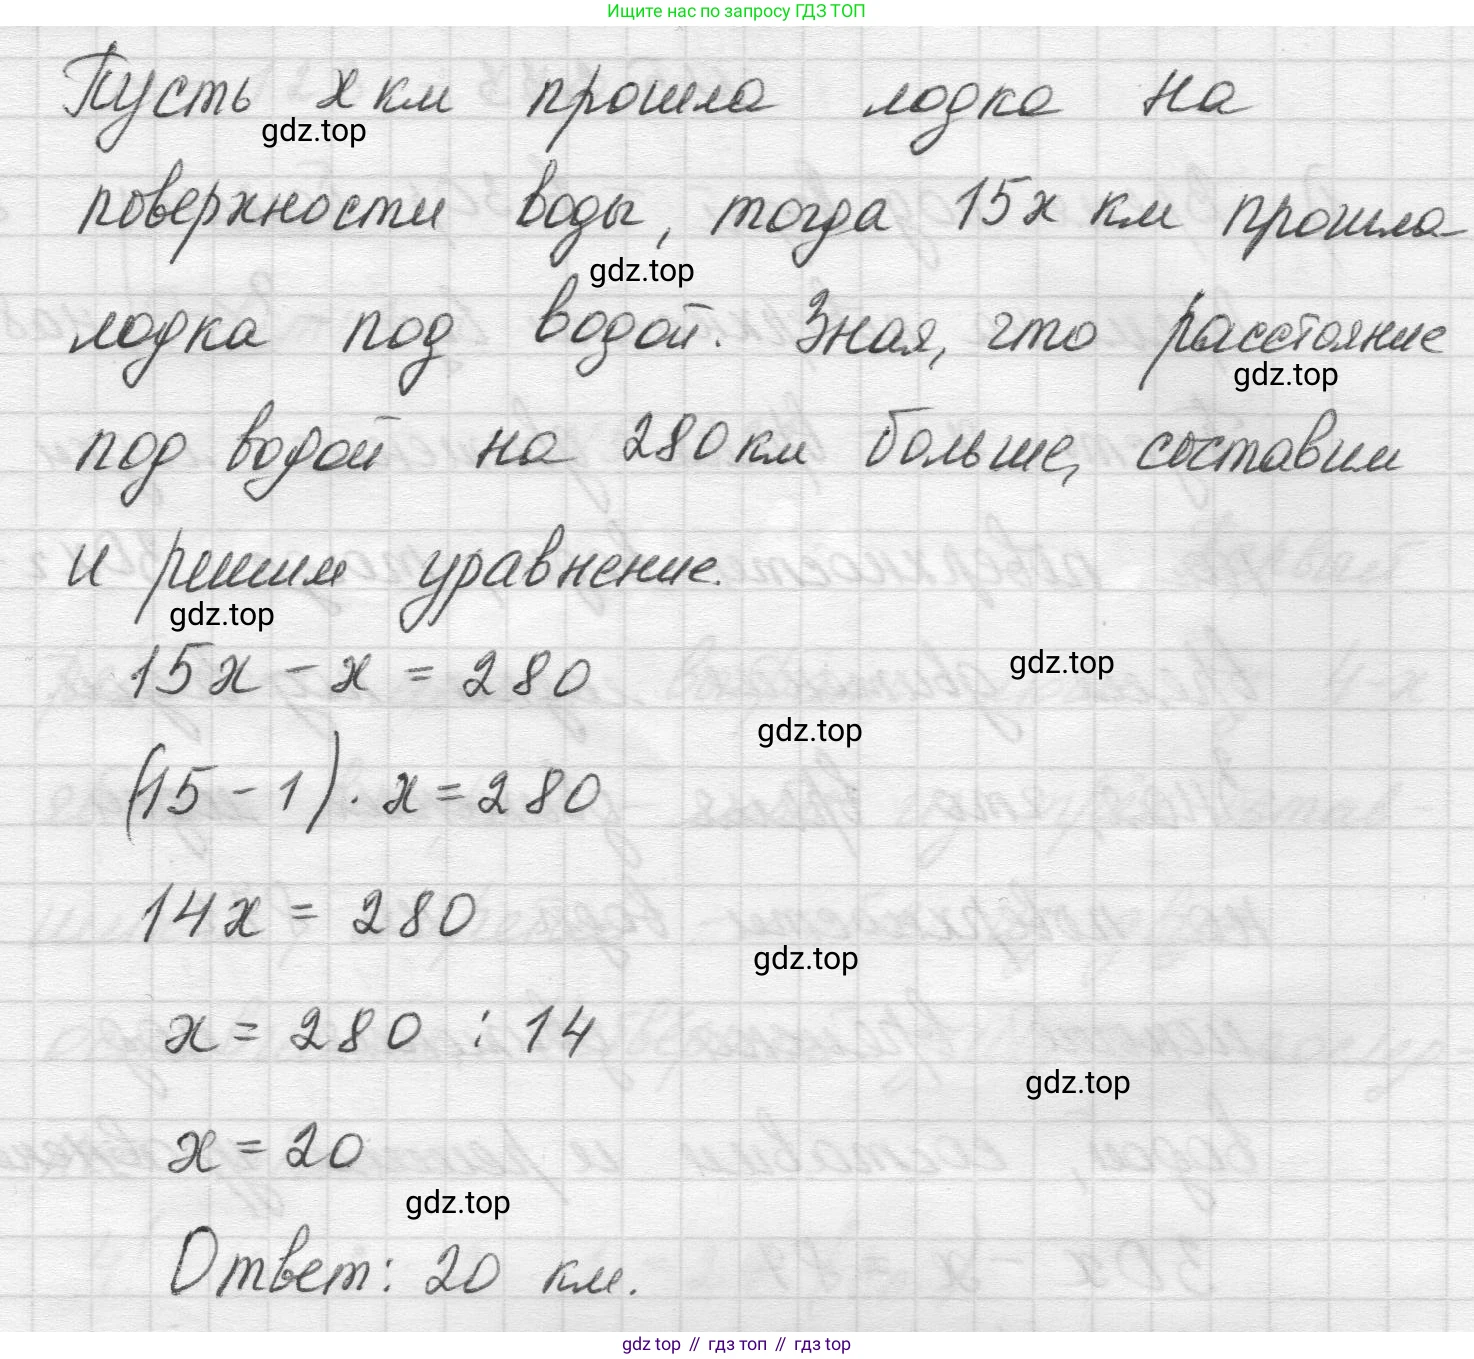 Ищите нас по запросу ГДЗ ТОП
Пусть x км прошла лодка на
gdz.top
поверхности воды, тогда 15x км прошла
gdz.top
лодка под водой. Зная, что расстояние
gdz.top
под водой на 280 км больше, составим
и решим уравнение.
gdz.top
15x - x = 280
gdz.top
gdz.top
(15 - 1) · x = 280
14x = 280
gdz.top
x = 280 : 14
gdz.top
x = 20
gdz.top
Ответ: 20 км.
gdz top // гдз топ // гдз top